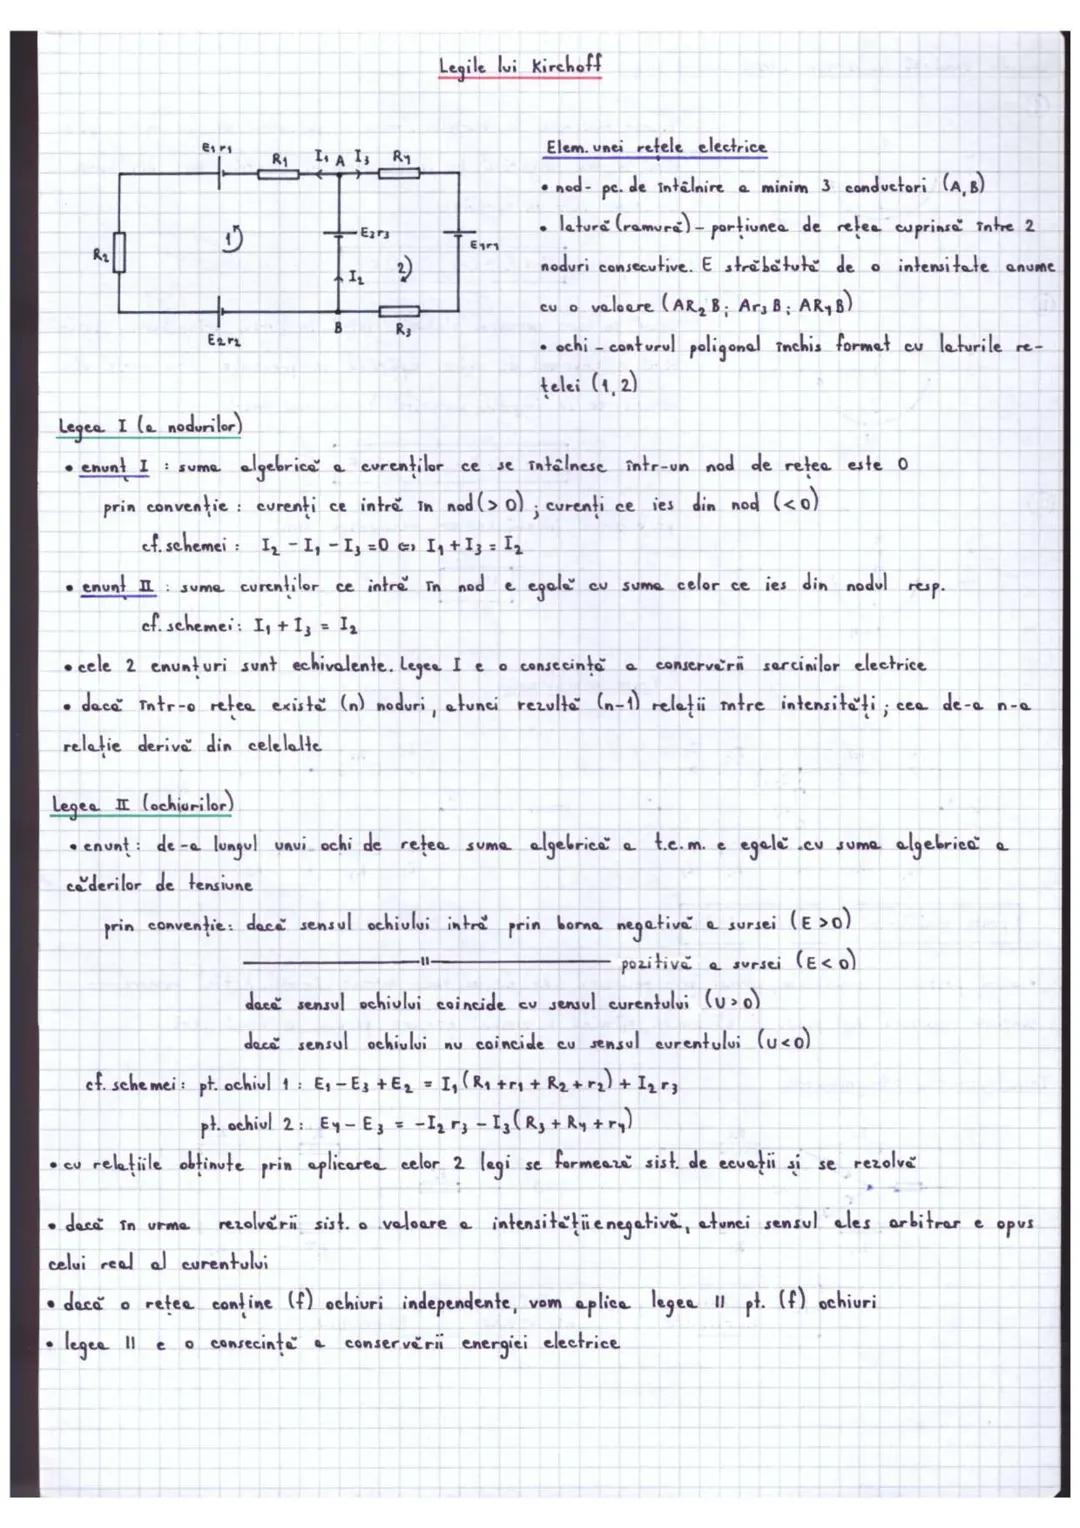 Legile lui Kirchoff
E₁r₁
R₁
I₁
A
I₃
R₄
R₂
1)
E₃r₃
E₄r₄
I₂
2)
E₂r₂
B
R₃
Elem. unei rețele electrice
• nod - pc. de întâlnire a minim 3 conductori (A, B)
• latură (ramură) - porțiunea de rețea cuprinsă între 2
noduri consecutive. E străbătută de o intensitate anume
cu o valoare (AR₂B; Ar₃B; AR₄B)
• ochi - conturul poligonal închis format cu laturile re-
țelei (1, 2)
Legea I (a nodurilor)
• enunț I : suma algebrică a curenților ce se întâlnesc într-un nod de rețea este 0
prin convenție : curenți ce intră în nod (> 0) ; curenți ce ies din nod (< 0)
cf. schemei : I₂ - I₁ - I₃ = 0 <=> I₁ + I₃ = I₂
• enunț II : suma curenților ce intră în nod e egală cu suma celor ce ies din nodul resp.
cf. schemei: I₁ + I₃ = I₂
• cele 2 enunțuri sunt echivalente. Legea I e o consecință a conservării sarcinilor electrice
• dacă într-o rețea există (n) noduri, atunci rezultă (n-1) relații între intensități ; cea de-a n-a
relație derivă din celelalte
Legea II (ochiurilor)
• enunț : de-a lungul unui ochi de rețea suma algebrică a t.e.m. e egală cu suma algebrică a
căderilor de tensiune
prin convenție: dacă sensul ochiului intră prin borna negativă a sursei (E > 0)
—— 11 —— pozitivă a sursei (E < 0)
dacă sensul ochiului coincide cu sensul curentului (U > 0)
dacă sensul ochiului nu coincide cu sensul curentului (U < 0)
cf. schemei : pt. ochiul 1 : E₁ - E₃ + E₂ = I₁(R₁ + r₁ + R₂ + r₂) + I₂r₃
pt. ochiul 2 : E₄ - E₃ = -I₂r₃ - I₃(R₃ + R₄ + r₄)
• cu relațiile obținute prin aplicarea celor 2 legi se formează sist. de ecuații și se rezolvă
• dacă în urma rezolvării sist. o valoare a intensității e negativă, atunci sensul ales arbitrar e opus
celui real al curentului
• dacă o rețea conține (f) ochiuri independente, vom aplica legea II pt. (f) ochiuri
• legea II e o consecință a conservării energiei electrice